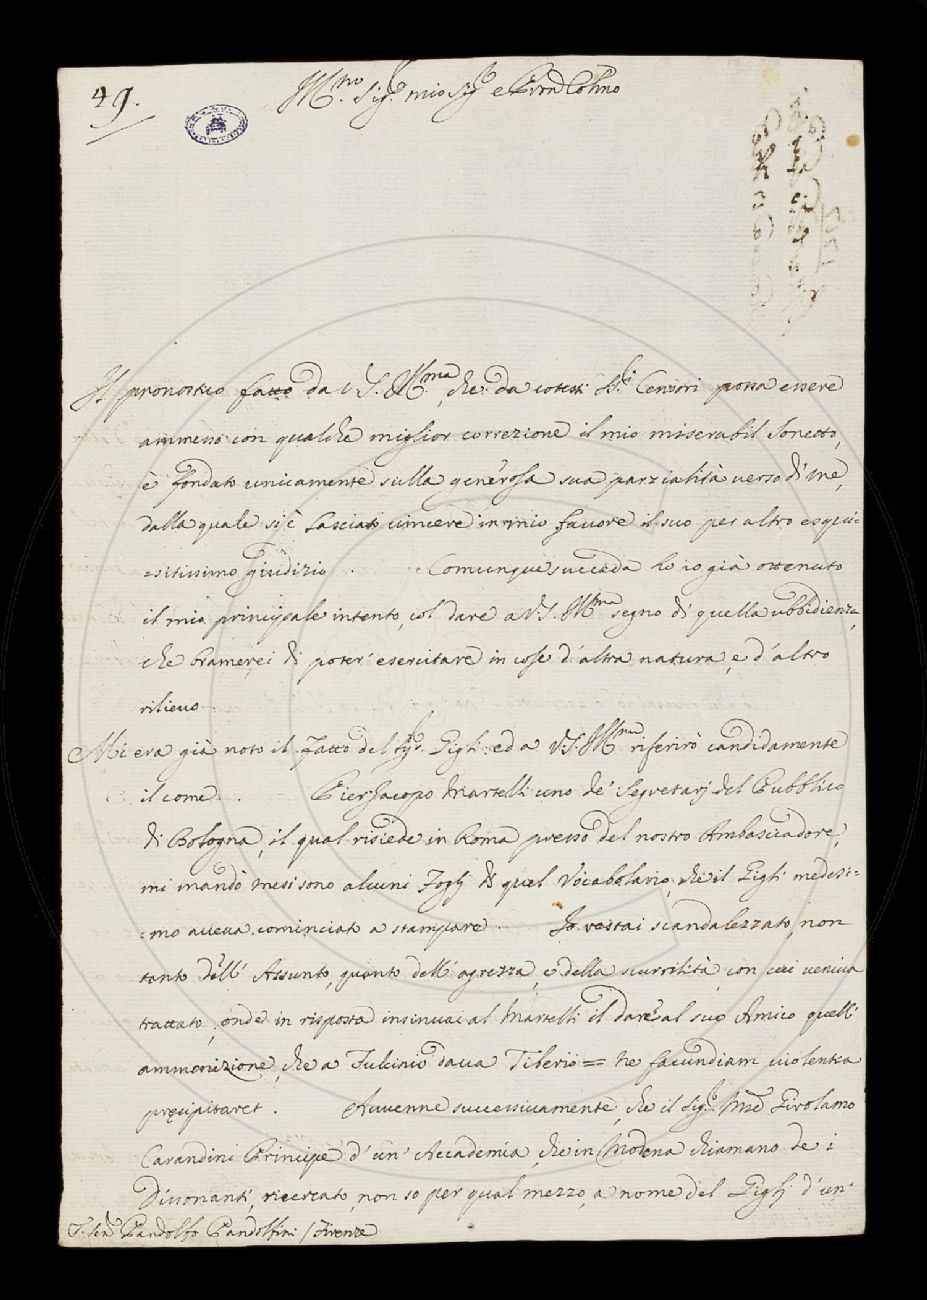 49.
Ill.mo Sig.r mio Sig.r e Pron Colmo
Il pronostico fatto da V. S. Ill.ma, che da cotesti SS.i Censori possa essere
ammesso con qualche miglior correzione il mio miserabil Sonetto,
è fondato unicamente sulla generosa sua parzialità verso di me,
dalla quale si è lasciato vincere in mio favore il suo per altro esqui=
=sitissimo giudizio. Comunque succeda ho io già ottenuto
il mio principale intento, col dare a V. S. Ill.ma segno di quella ubbidienza,
che bramerei di poter' esercitare in cose d'altra natura, e d'altro
rilievo
Mi era già noto il fatto del Sig.r Gigli; ed a V. S. Ill.ma riferirò candidamente
il come. Pier Jacopo Martelli uno de' Segretarj del Pubblico
di Bologna, il qual risiede in Roma presso del nostro Ambasciadore,
mi mandò mesi sono alcuni Foglj di quel Vocabolario, che il Gigli medesi=
=mo aveva cominciato a stampare. Io restai scandalezzato, non
tanto dell' Assunto, quanto dell' agrezza, e della scurrilità, con cui veniva
trattato, onde in risposta insinuai al Martelli il dare al suo Amico quell'
ammonizione, che a Fulcinio dava Tiberio = ne facundiam violentia
precipitaret. Avvenne successivamente, che il Sig.r Mse Girolamo
Carandini Principe d'un' Accademia, che in Modena chiamano de i
Dissonanti, ricercato, non so per qual mezzo, a nome del Gigli d'un'
S. Sen.r Pandolfo Pandolfini / Firenze